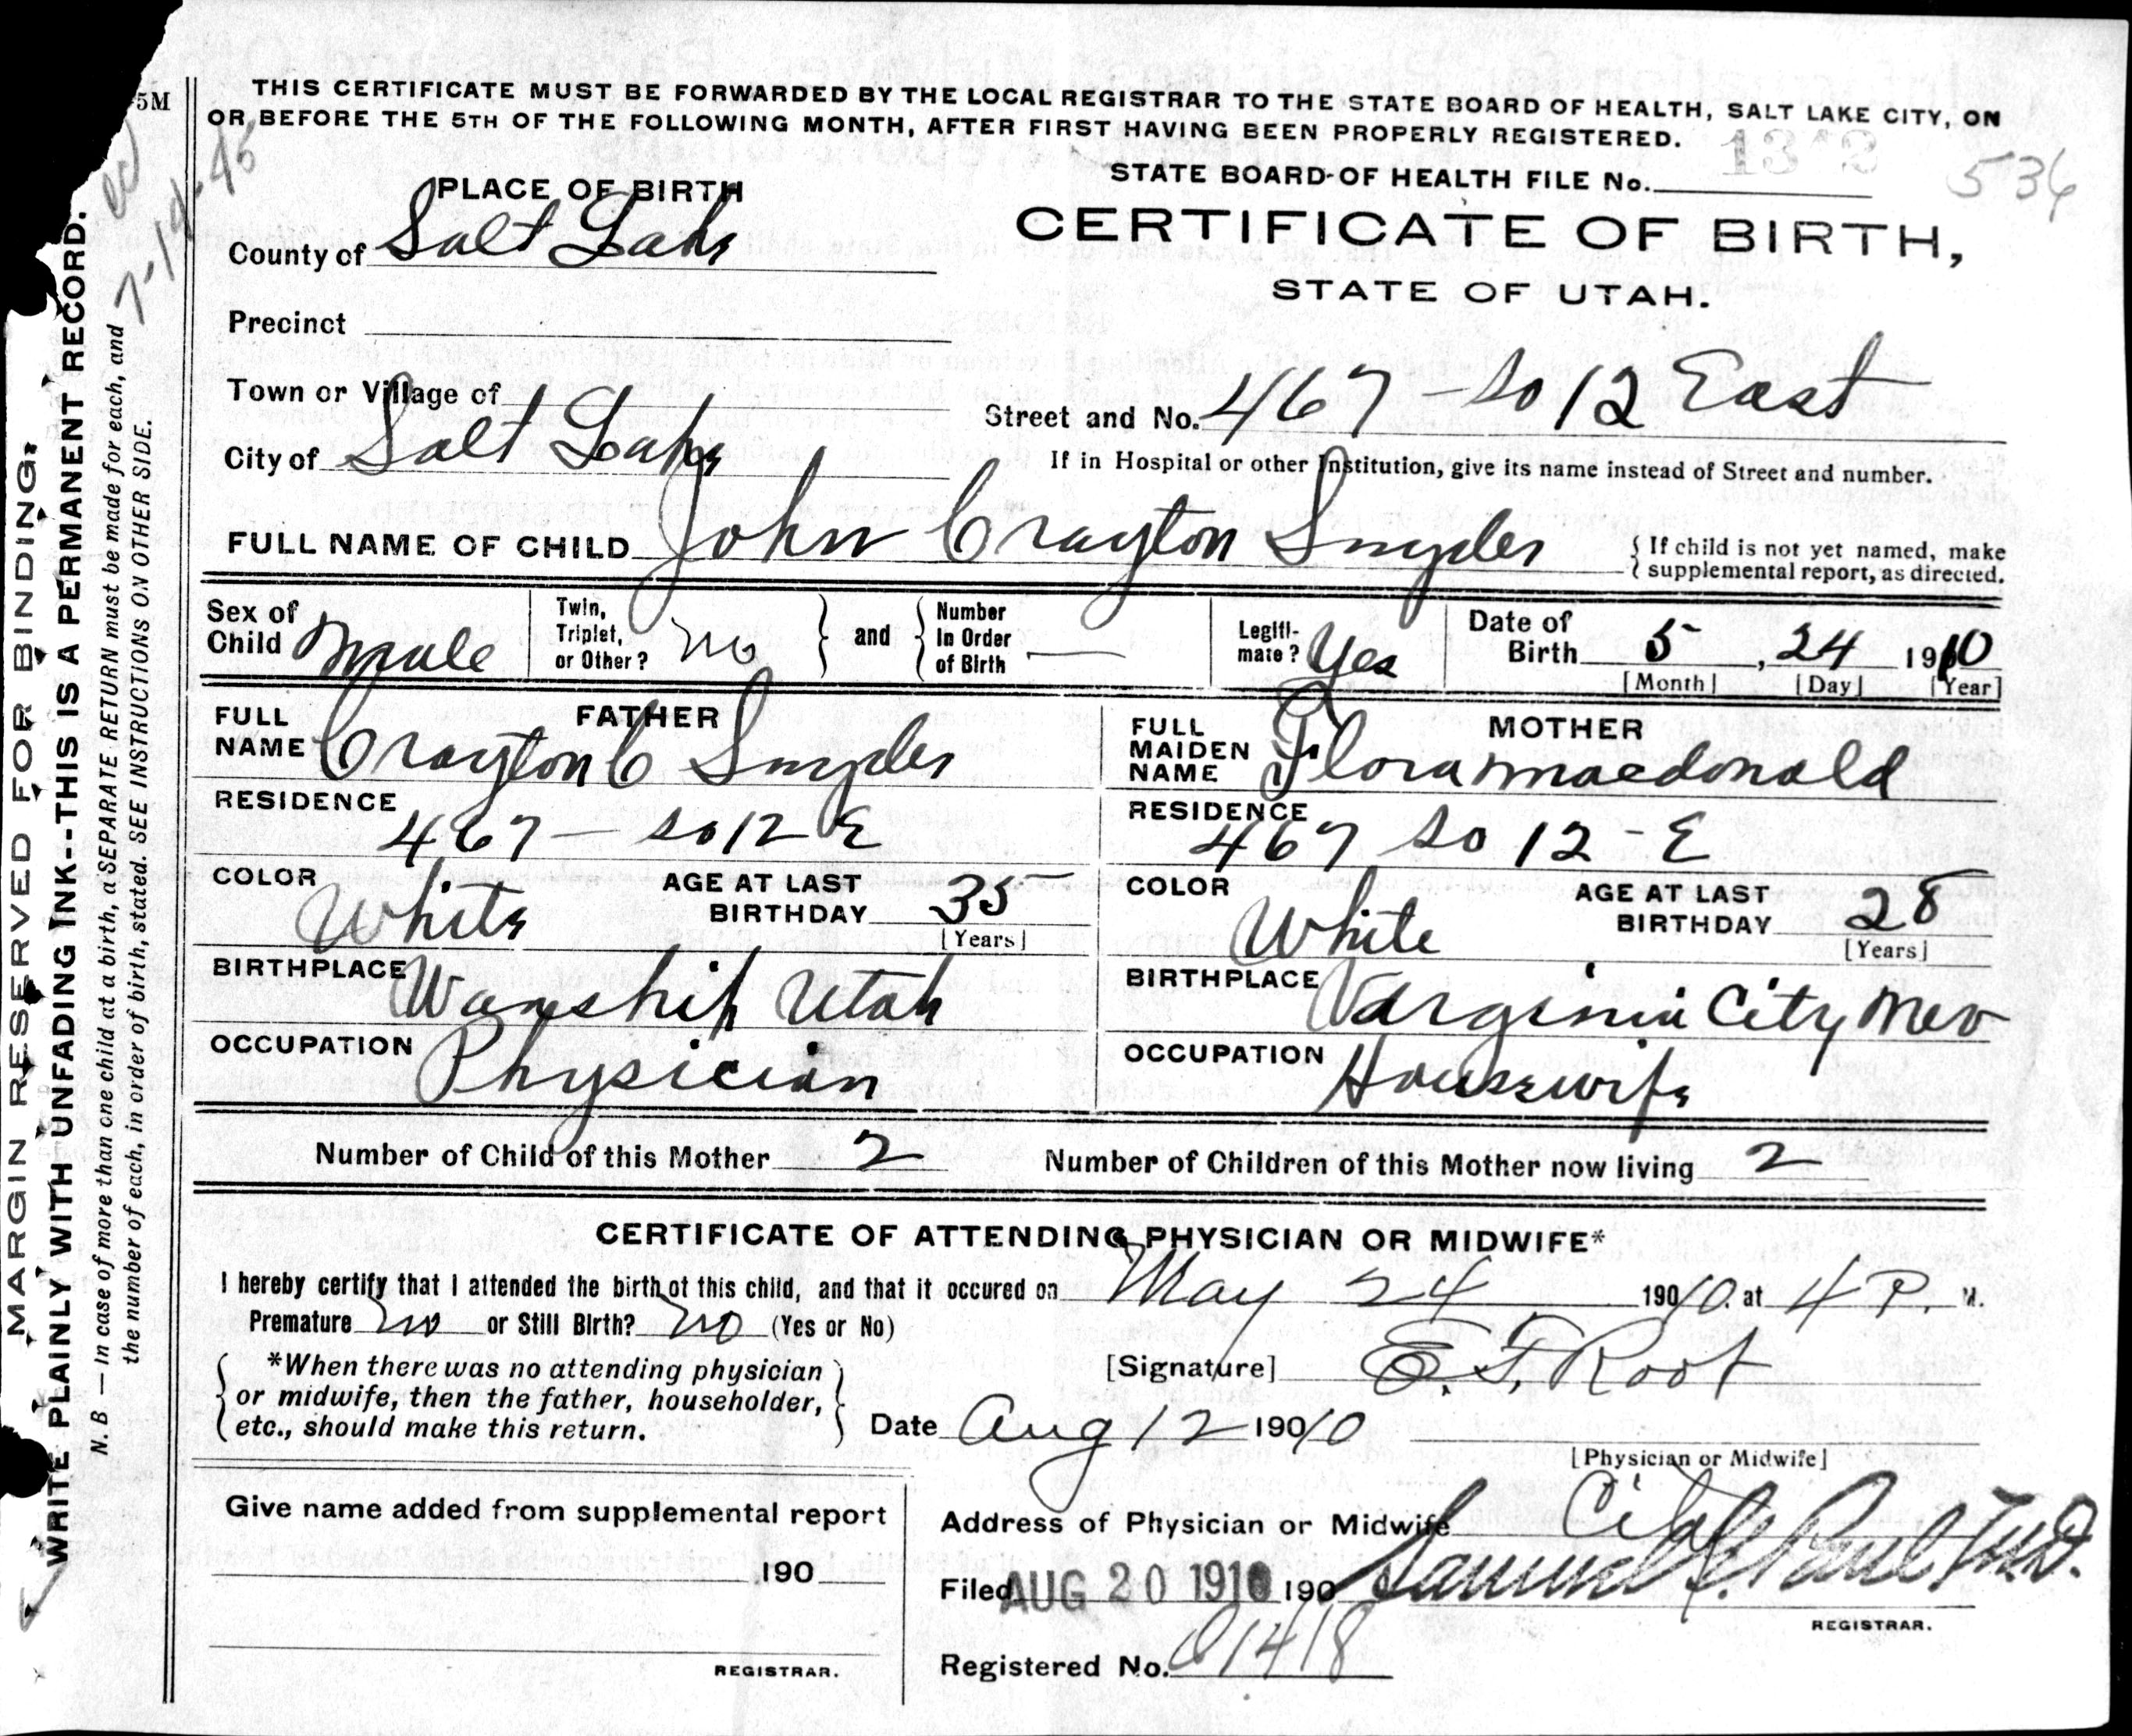 5M
THIS CERTIFICATE MUST BE FORWARDED BY THE LOCAL REGISTRAR TO THE STATE BOARD OF HEALTH, SALT LAKE CITY, ON
OR BEFORE THE 5TH OF THE FOLLOWING MONTH, AFTER FIRST HAVING BEEN PROPERLY REGISTERED.
STATE BOARD OF HEALTH FILE No. 536
7-19-45
PLACE OF BIRTH
CERTIFICATE OF BIRTH,
STATE OF UTAH.
County of Salt Lake
Precinct
Town or Village of
Street and No. 467 - So 12 East
City of Salt Lake
If in Hospital or other Institution, give its name instead of Street and number.
FULL NAME OF CHILD John Crayton Snyder
{ If child is not yet named, make
supplemental report, as directed.
Sex of Child Male
Twin, Triplet, or Other? No } and { Number In Order of Birth —
Legiti- mate? Yes
Date of Birth 5, 24 1910
[Month] [Day] [Year]
FATHER
FULL NAME Crayton C Snyder
RESIDENCE 467 - So 12 E
COLOR White AGE AT LAST BIRTHDAY 35
[Years]
BIRTHPLACE Wanship Utah
OCCUPATION Physician
MOTHER
FULL MAIDEN NAME Flora Macdonald
RESIDENCE 467 So 12 - E
COLOR White AGE AT LAST BIRTHDAY 28
[Years]
BIRTHPLACE Virginia City Nev
OCCUPATION Housewife
Number of Child of this Mother 2 Number of Children of this Mother now living 2
CERTIFICATE OF ATTENDING PHYSICIAN OR MIDWIFE*
I hereby certify that I attended the birth of this child, and that it occured on May 24 1910. at 4 P. M.
Premature No or Still Birth? No (Yes or No)
*When there was no attending physician
or midwife, then the father, householder,
etc., should make this return.
[Signature] E. F. Root
Date Aug 12 1910
[Physician or Midwife]
Give name added from supplemental report
190
REGISTRAR.
Address of Physician or Midwife City
Filed AUG 20 1910 190 Samuel G. Paul M.D.
REGISTRAR.
Registered No. 1418
MARGIN RESERVED FOR BINDING.
WRITE PLAINLY WITH UNFADING INK--THIS IS A PERMANENT RECORD.
N. B — In case of more than one child at a birth, a SEPARATE RETURN must be made for each, and
the number of each, in order of birth, stated. SEE INSTRUCTIONS ON OTHER SIDE.